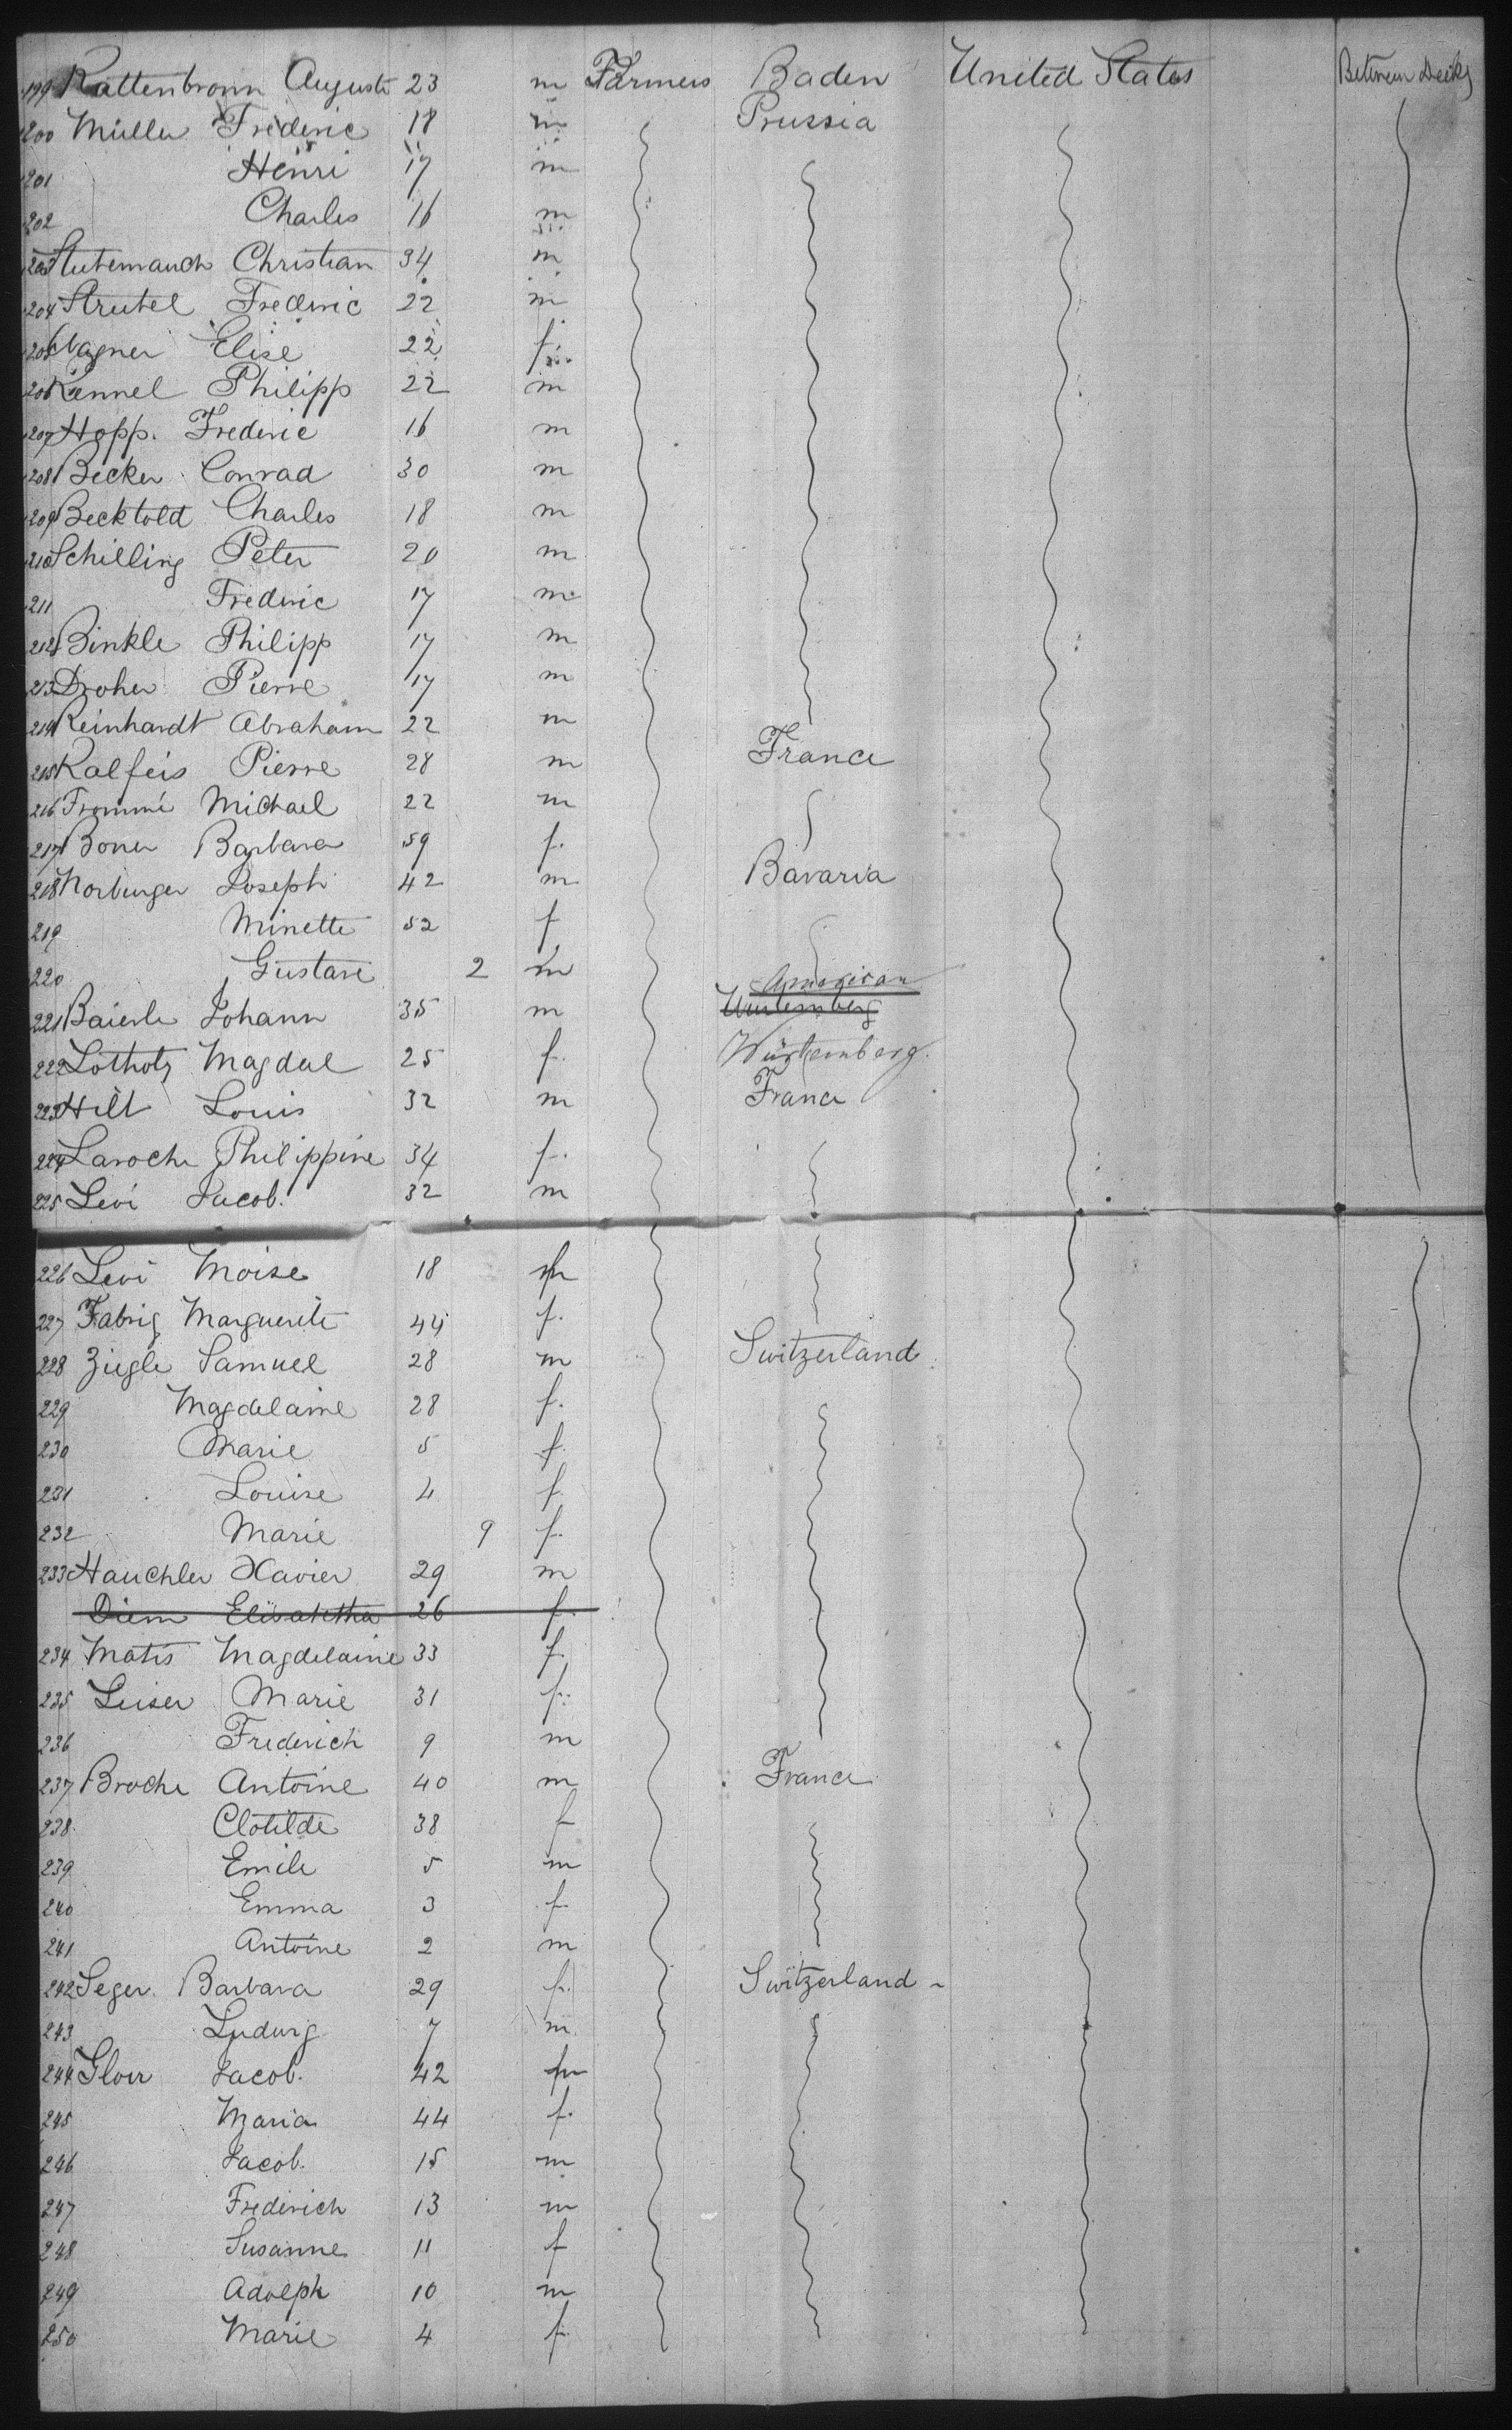 199 Kattenbronn Auguste 23 m Farmers Baden United States Between Decks
200 Müller Frederic 18 m Prussia
201 Henri 17 m
202 Charles 16 m
203 Christian 34 m
204 Strutel Frederic 22 m
205 Wagner Elise 22 f.
206 Kennel Philipp 22 m
207 Hopp. Frederic 16 m
208 Becker Conrad 30 m
209 Becktold Charles 18 m
210 Schilling Peter 20 m
211 Frederic 17 m
212 Binkle Philipp 17 m
213 Droher Pierre 17 m
214 Reinhardt Abraham 22 m
215 Kalfeis Pierre 28 m France
216 Frommé Michael 22 m
217 Boner Barbara 59 f.
218 Norburger Joseph 42 m Bavaria
219 Minette 52 f
220 Gustave 2 m
American
221 Baierle Johann 35 m Wurtemberg
222 Magdal 25 f. Würtemberg.
223 Hilt Louis 32 m France
224 Laroche Philippine 34 f.
225 Levi Jacob. 32 m
226 Levi Moise 18 m
227 Fabrig Marguerite 44 f.
228 Zugle Samuel 28 m Switzerland
229 Magdelaine 28 f.
230 Marie 5 f.
231 Louise 4 f.
232 Marie 9 f.
233 Hauchler Xavier 29 m
Diem Elisabetha 26 f.
234 Matis Magdelaine 33 f.
235 Leiser Marie 31 f.
236 Frederich 9 m
237 Broche Antoine 40 m France
238 Clotilde 38 f
239 Emile 5 m
240 Emma 3 f.
241 Antoine 2 m
242 Seger Barbara 29 f. Switzerland
243 Ludwig 7 m
244 Gloor Jacob. 42 m
245 Maria 44 f.
246 Jacob. 15 m
247 Frederich 13 m
248 Susanne 11 f
249 Adolph 10 m
250 Marie 4 f.